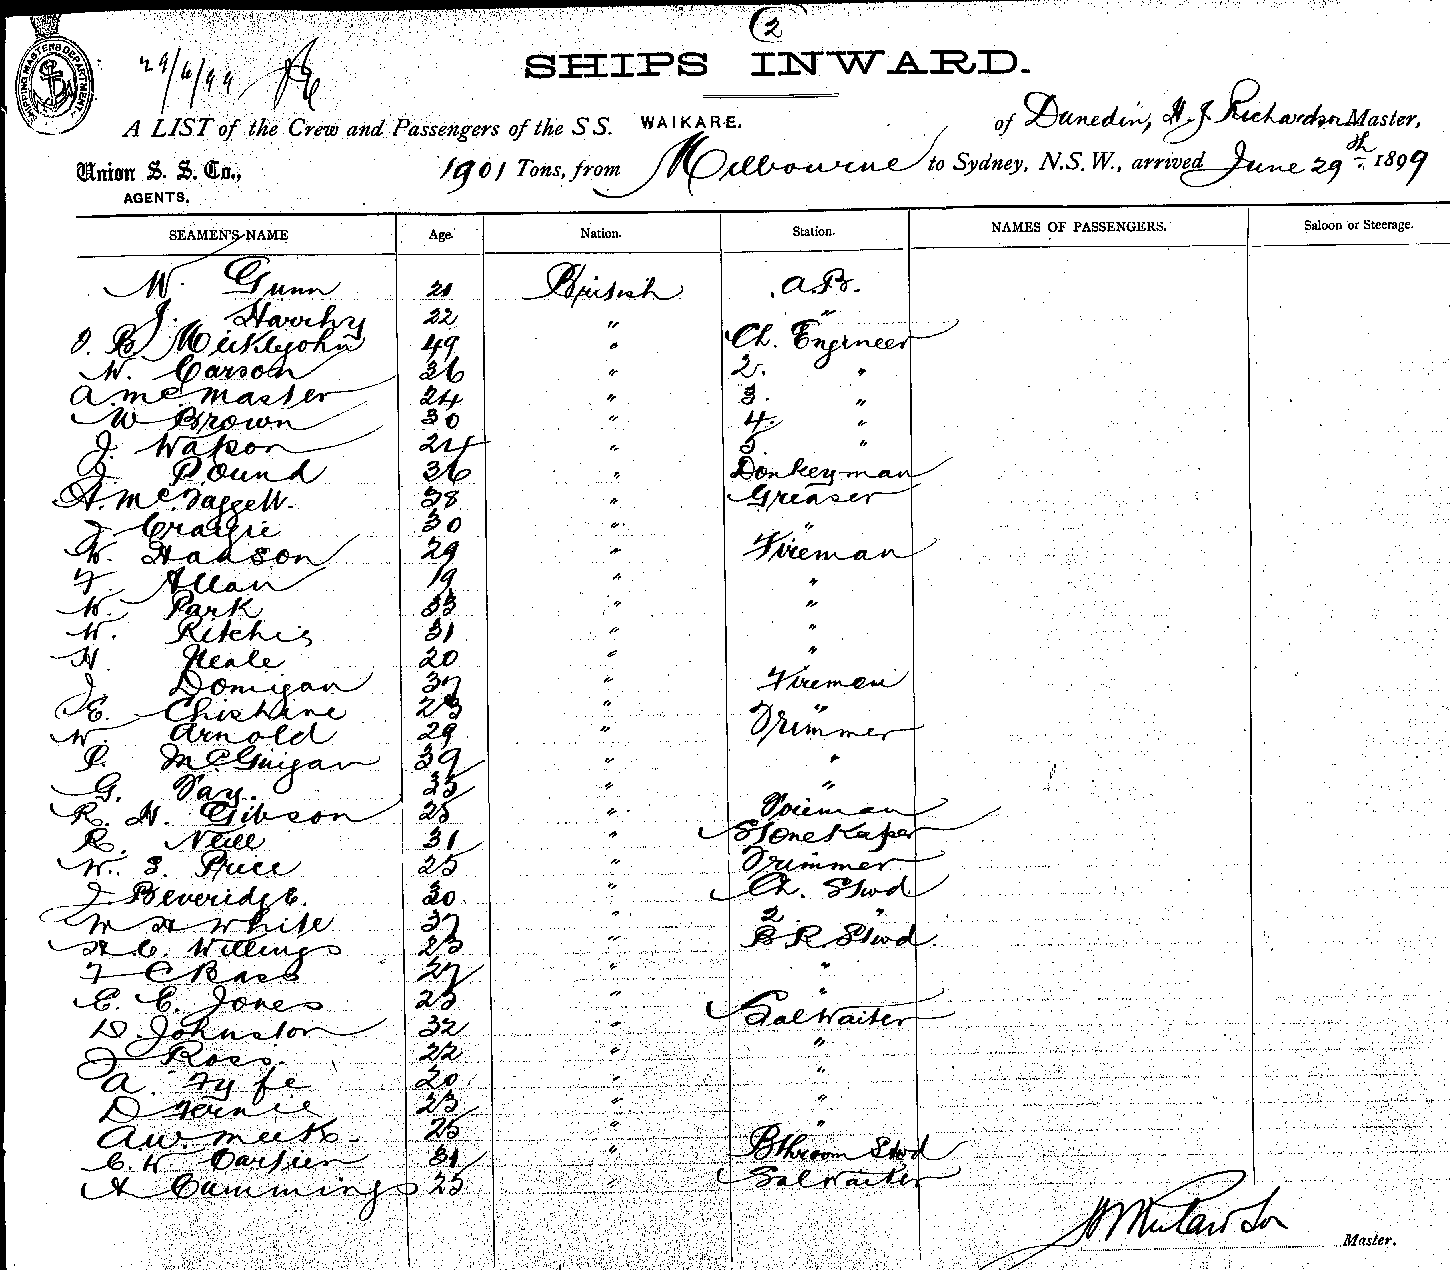 2
SHIPS INWARD.
SHIPPING MASTERS DEPARTMENT
29/6/99
A LIST of the Crew and Passengers of the S S. WAIKARE. of Dunedin, H. J. Richardson Master,
Union S. S. Co., 1901 Tons, from Melbourne to Sydney, N.S.W., arrived June 29th 1899
AGENTS.
SEAMEN'S NAME Age. Nation. Station. NAMES OF PASSENGERS. Saloon or Steerage.
W. Gunn 21 British A.B.
J. Harvhy 22 " "
O. B. Miklejohn 49 " Ch. Engineer
W. Carson 36 " 2. "
A. McMaster 24 " 3. "
W Brown 30 " 4. "
J. Watson 24 " 5 "
J. Pound 36 " Donkeyman
A. McTaggett. 38 " Greaser
J. Craigie 30 " "
W. Hanson 29 " Fireman
F. Allan 19 " "
W. Park 33 " "
W. Ritchie 31 " "
H. Neale 20 " "
J. Domigan 37 " Firemen
E. Christine 23 " "
W. Arnold 29 " Trimmer
P. McGuigan 39 " "
G. Tay. 33 " "
R. H. Gibson 25 " Foieman
R. Neill 31 " Storekeeper
W. S. Price 25 " Trimmer
J Beveridge. 30 " Ch. Stwd
W H White 37 " 2 "
H C. Willings 23 " B R Stwd
F C Bass 27 " "
E. C. Jones 23 " "
D Johnston 32 " Sal Waiter
J Ross. 22 " "
A. Fyfe 20 " "
D Fernie 23 " "
A W Meek. 25 " "
C. W Carsien 31 " Bthroom Stwd
A Cummings 25 " Sal Waiter
Master.